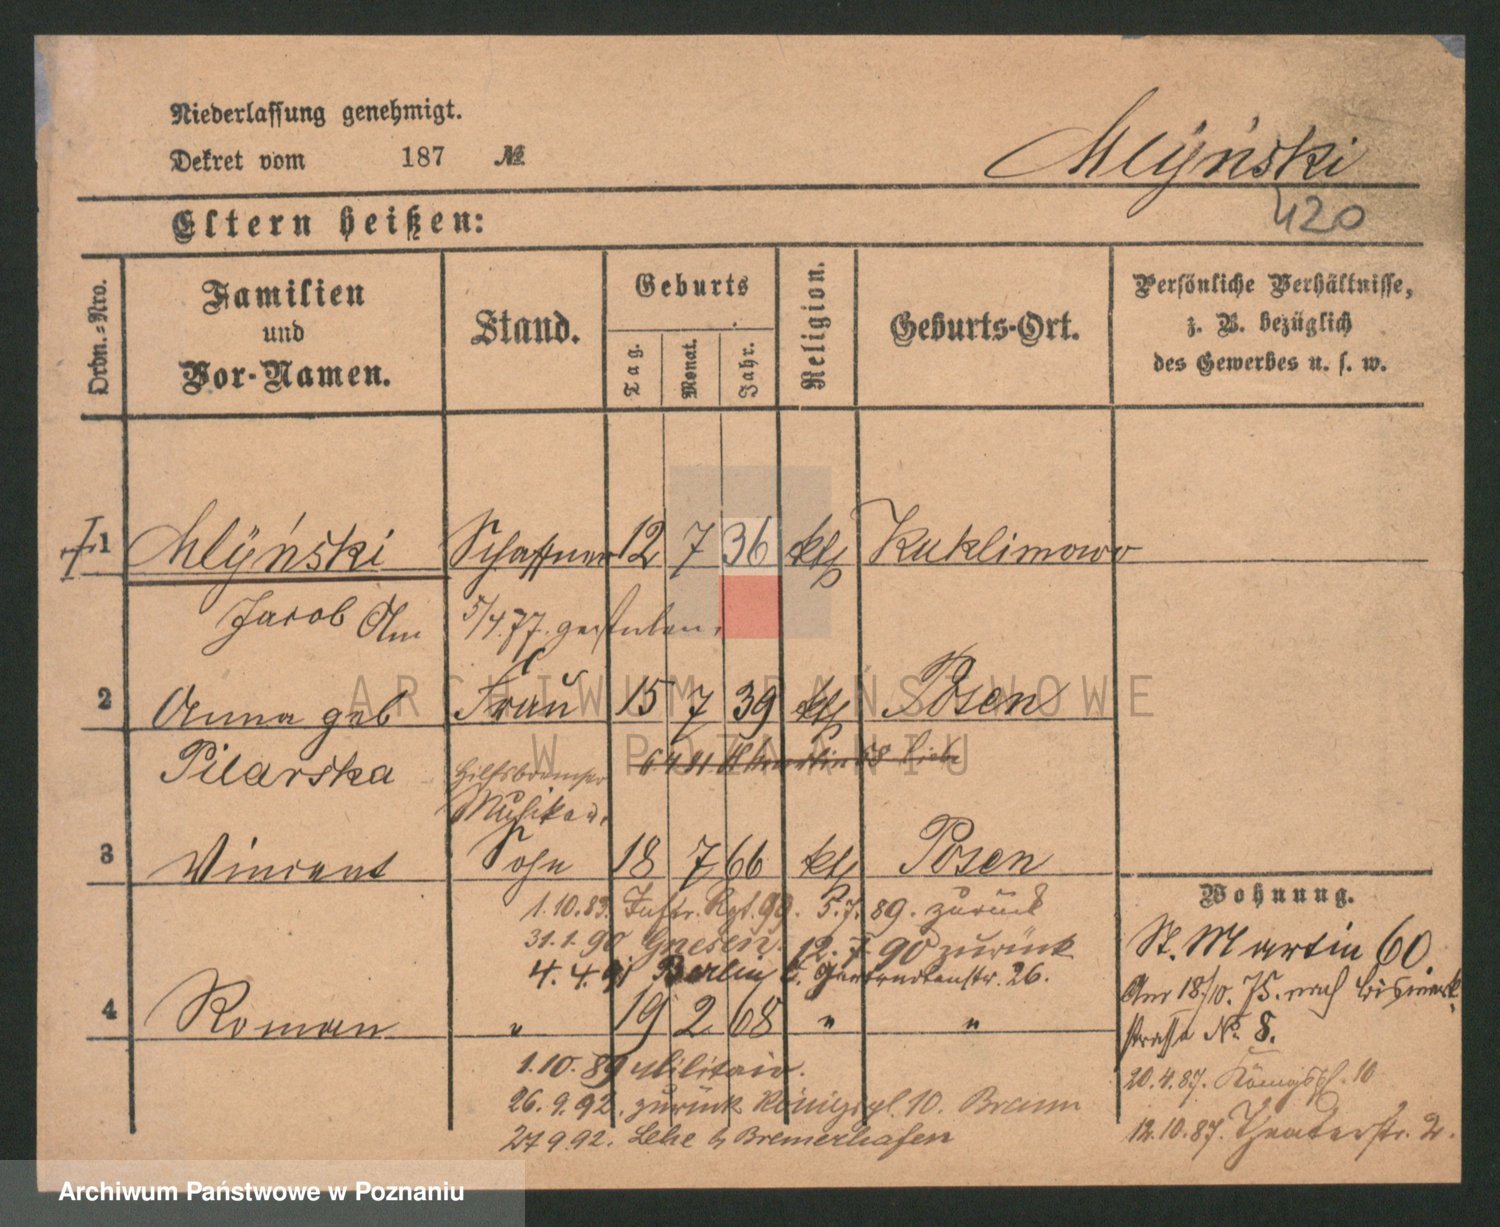 Niederlassung genehmigt.
Dekret vom 187 №
Młyński
420
Eltern heißen:
Ordn.-Nro.
Familien und Vor-Namen.
Stand.
Geburts
Tag.
Monat.
Jahr.
Religion.
Geburts-Ort.
Persönliche Verhältnisse,
z. B. bezüglich
des Gewerbes u. s. w.
1 Młyński Schaffner 12 7 36 kth Kuklimowo
Jacob Am 5/4.77. gestorben.
2 Anna geb Frau 15 7 39 kth Posen
Pilarska
Musikan.
3 Vincent Sohn 18 7 66 kth Posen
1.10.89. Inftr. Rgt. 99. 5.7.89. zurück
31.1.90 Gnesen. 12.7.90 zurück
4.4.91 Berlin 26.
4 Roman " 19 2 68 " "
1.10.89 Militair.
26.9.92. zurück Königspl. 10. Braun
27.9.92. Lehe b Bremerhafen
Wohnung.
St. Martin 60
Am 18/10. 75. nach Bismark-
straße No. 8.
20.4.87. Königspl. 10
12.10.87. Theaterstr. 2.
ARCHIWUM PAŃSTWOWE
W POZNANIU
Archiwum Państwowe w Poznaniu